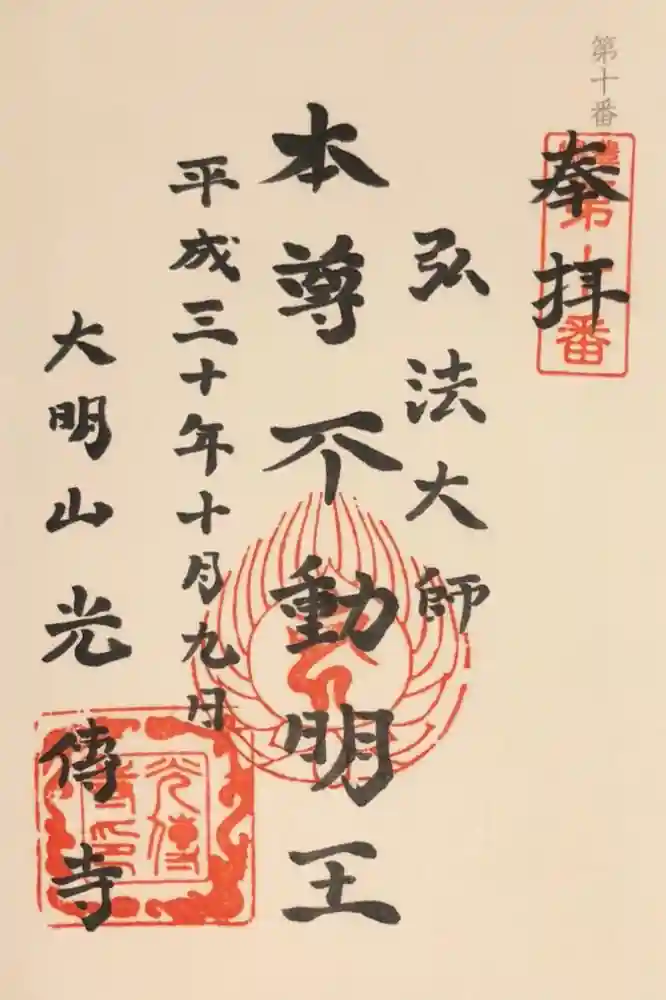 第十番
奉拝
第十番
弘法大師
本尊不動明王
平成三十年十月九日
大明山光傳寺